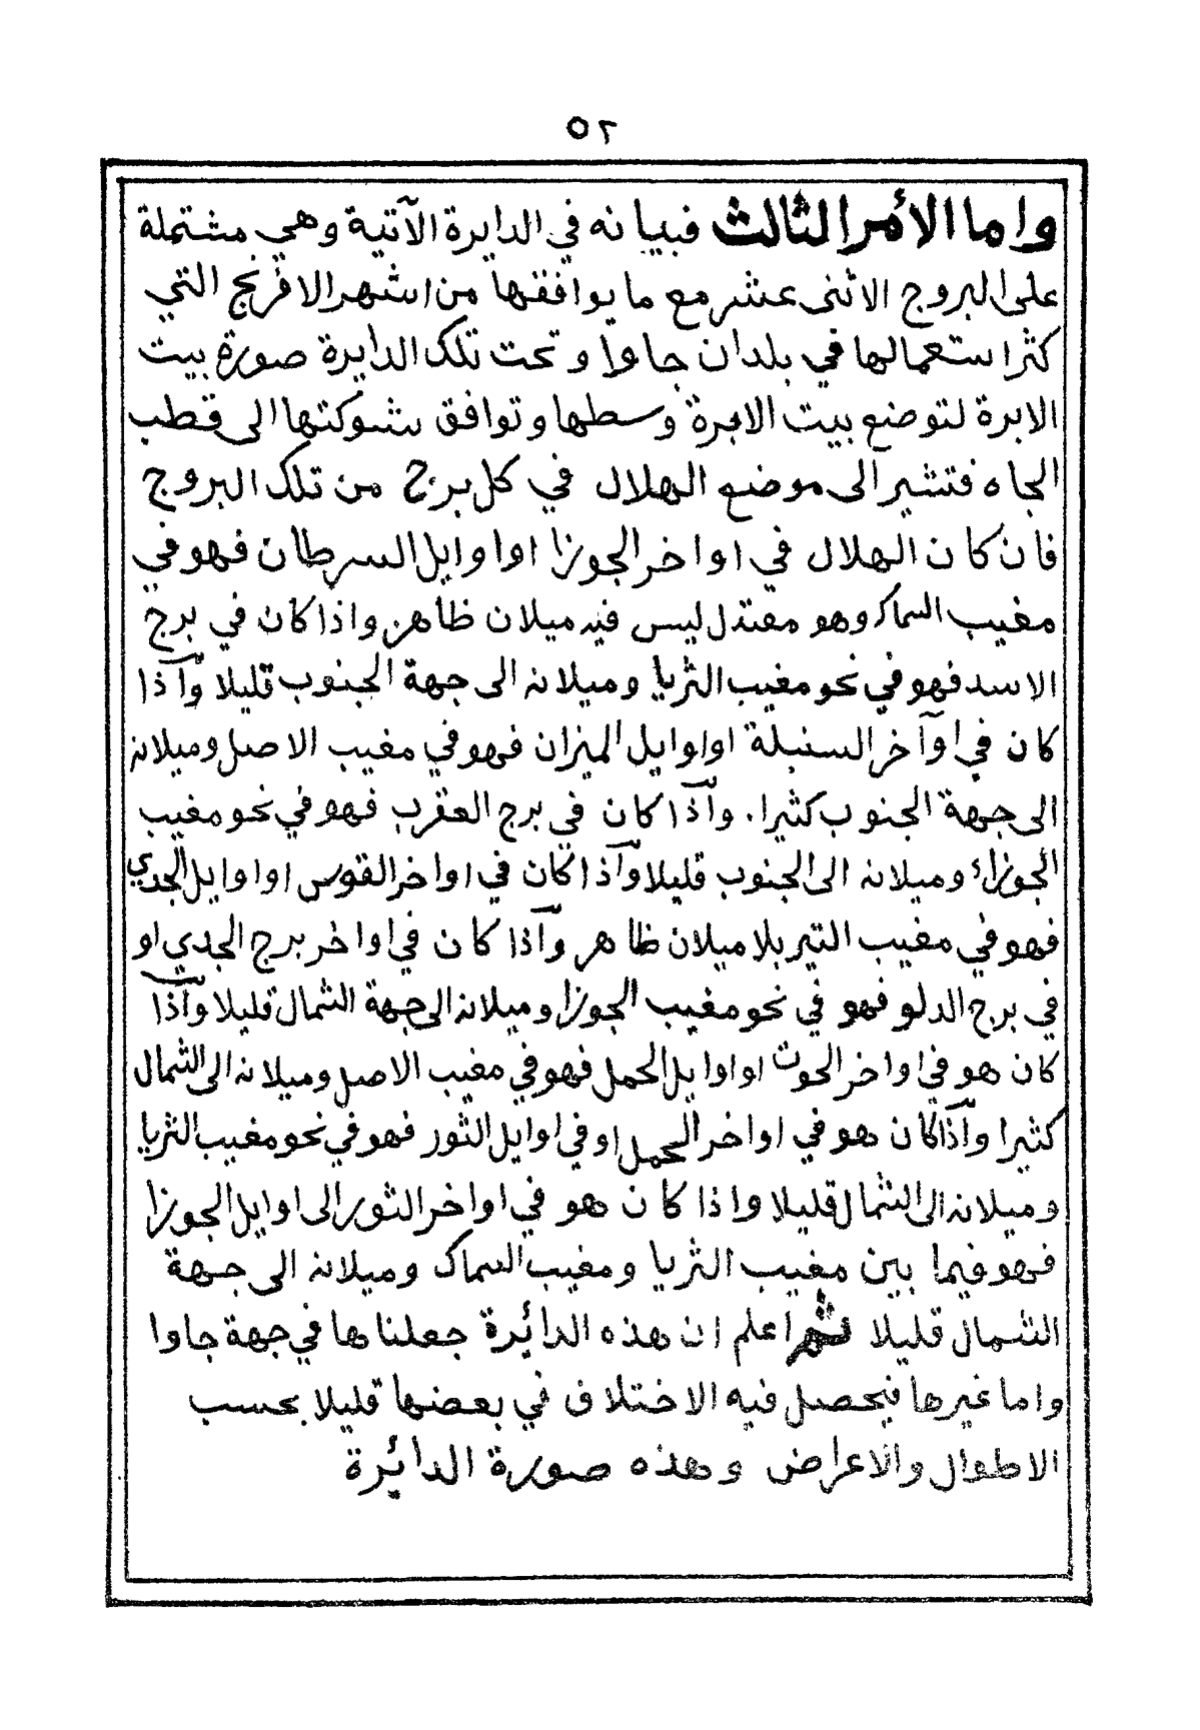 ٥٢
واما الأمر الثالث فبيانه في الدايرة الآتية وهي مشتملة
على البروج الاثنى عشر مع ما يوافقها من اشهر الافرنج التي
كثر استعمالها في بلدان جاوا وتحت تلك الدايرة صورة بيت
الابرة لتوضع بيت الابرة وسطها وتوافق شوكتها الى قطب
الجاه فتشير الى موضع الهلال في كل برج من تلك البروج
فان كان الهلال في اواخر الجوزا او اوايل السرطان فهو في
مغيب السماك وهو معتدل ليس فيه ميلان ظاهر واذا كان في برج
الاسد فهو في نحو مغيب الثريا وميلانه الى جهة الجنوب قليلا وآذا
كان في اوآخر السنبلة او اوايل الميزان فهو في مغيب الاصل وميلانه
الى جهة الجنوب كثيرا. وآذا كان في برج العقرب فهو في نحو مغيب
الجوزاء وميلانه الى الجنوب قليلا وآذا كان في اواخر القوس او اوايل الجدي
فهو في مغيب التير بلا ميلان ظاهر وآذا كان في اواخر برج الجدي او
في برج الدلو فهو في نحو مغيب الجوزا وميلانه الى جهة الشمال قليلا وآذا
كان هو في اواخر الحوت او اوايل الحمل فهو في مغيب الاصل وميلانه الى الشمال
كثيرا وآذا كان هو في اواخر الحمل او في اوايل الثور فهو في نحو مغيب الثريا
وميلانه الى الشمال قليلا واذا كان هو في اواخر الثور الى اوايل الجوزا
فهو فيما بين مغيب الثريا ومغيب السماك وميلانه الى جهة
الشمال قليلا ثم اعلم ان هذه الدائرة جعلناها في جهة جاوا
واما غيرها فيحصل فيه الاختلاف في بعضها قليلا بحسب
الاطوال والاعراض وهذه صورة الدائرة